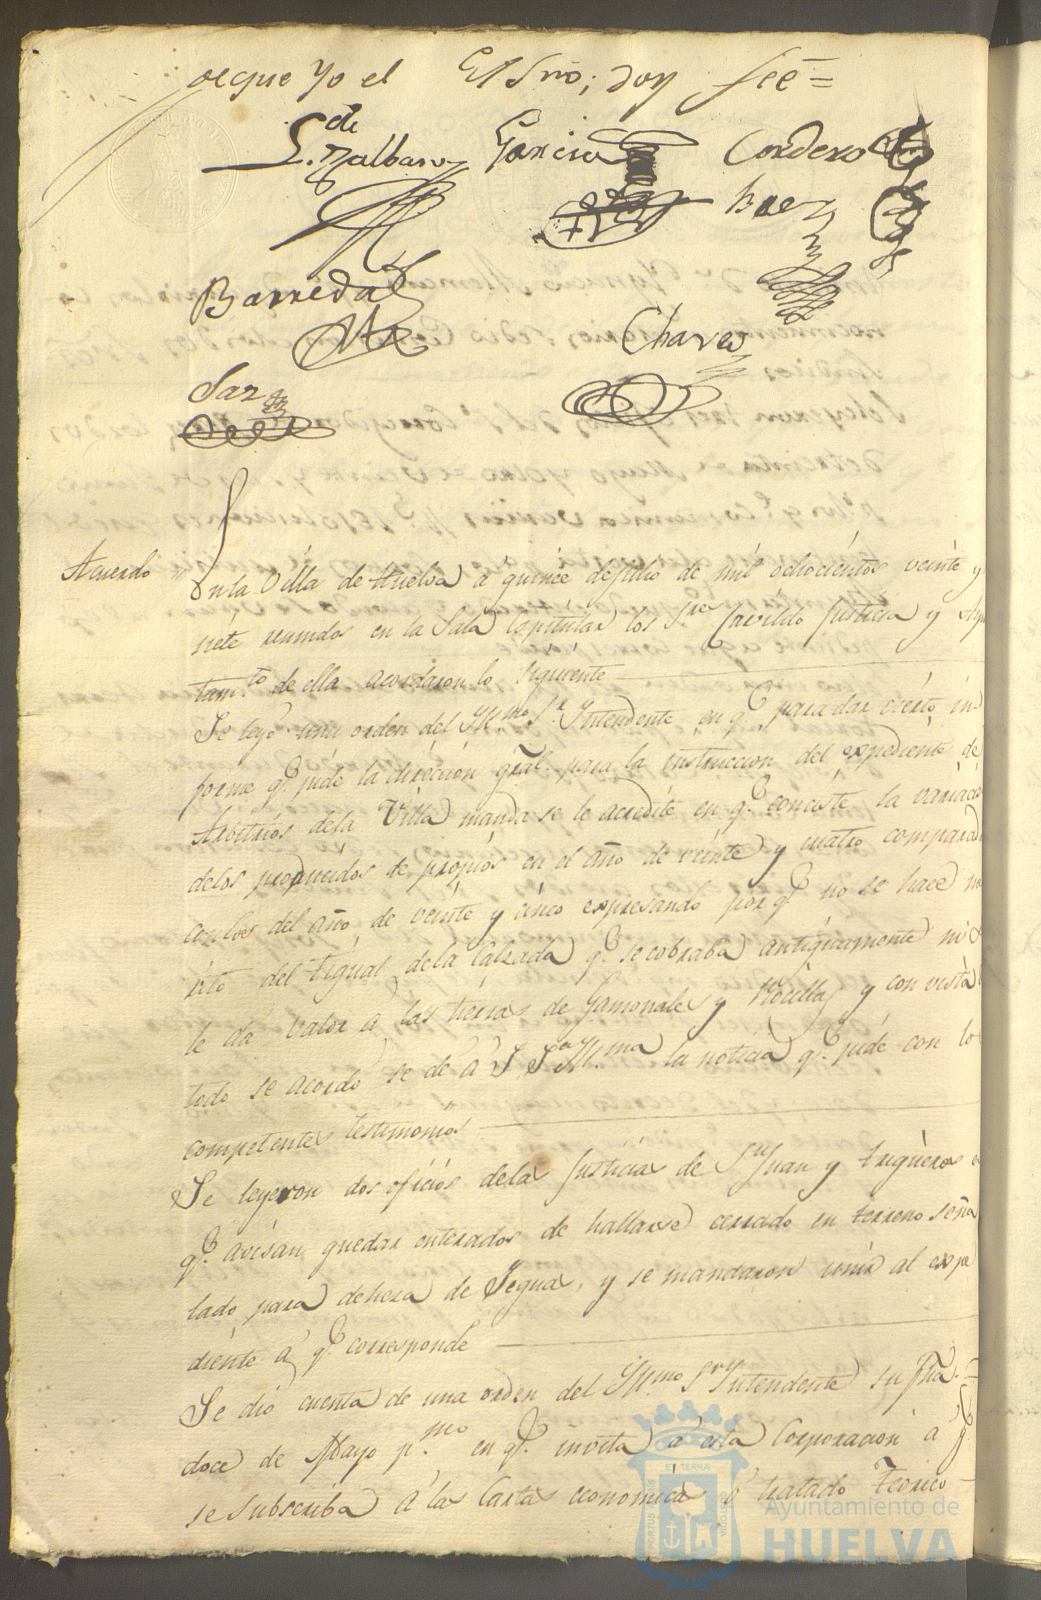 de que Yo el Essno; doy feé=
Garcia Cordero
Baez
Barreda
Chaves
Saz
Acuerdo
En la Villa de Huelva á quince de Julio de mil ochocientos veinte y
siete reunidos en la Sala Capitular los Sres Cavildo Justicia y Ayun
tamto de ella acordaron lo siguiente
Se leyó una orden del Illmo Sr Intendente, en qe para dar cierto in
forme qe pide la dirección gral para la instruccion del expediente de
Arbitrios dela Villa manda se le acredite en qe concisté la variació
delos producidos de propios en el año de veinte y cuatro comparado
conlos del año de veinte y cinco expresando por qe no se hace mé
rito del tigual dela Calzada qe se cobraba antiguamente ni se
le dá valor á las tierras de Gamonales y Rocillas y con vista
todo se acordó se dé á S. Sa Illma la noticia qe pide con lo
competentes testimonios
Se leyeron dos oficios delas Justicias de Sn Juan y Trigueros en
qe avisan quedar enterados de hallarse cerrado en terreno seña
lado para dehesa de Yeguas, y se mandaron unir al expe
diente á qe corresponde
Se dió cuenta de una orden del Illmo Sr Intendente su fha
doce de Mayo pmo en qe invita á esta Corporación á qe
se subscriba á las Cartas económicas ó tratado Teorico
PORTUS MARIS ET TERRAE CUSTODIA
Ayuntamiento de
HUELVA